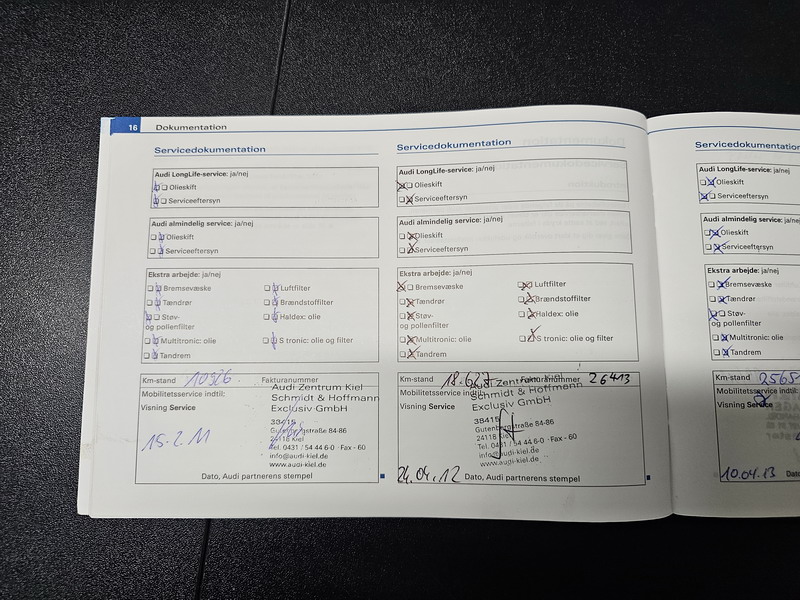 16 Dokumentation
Servicedokumentation
Audi LongLife-service: ja/nej
Olieskift
Serviceeftersyn
Audi almindelig service: ja/nej
Olieskift
Serviceeftersyn
Ekstra arbejde: ja/nej
Bremsevæske
Tændrør
Støv-
og pollenfilter
Multitronic: olie
Tandrem
Luftfilter
Brændstoffilter
Haldex: olie
S tronic: olie og filter
Km-stand 10926 Fakturanummer
Mobilitetsservice indtil:
Visning Service
Audi Zentrum Kiel
Schmidt & Hoffmann
Exclusiv GmbH
38415
Gutenbergstraße 84-86
24118 Kiel
Tel. 0431 / 54 44 6-0 · Fax - 60
info@audi-kiel.de
www.audi-kiel.de
15.2.11
Dato, Audi partnerens stempel
Servicedokumentation
Audi LongLife-service: ja/nej
Olieskift
Serviceeftersyn
Audi almindelig service: ja/nej
Olieskift
Serviceeftersyn
Ekstra arbejde: ja/nej
Bremsevæske
Tændrør
Støv-
og pollenfilter
Multitronic: olie
Tandrem
Luftfilter
Brændstoffilter
Haldex: olie
S tronic: olie og filter
Km-stand 18.627 Fakturanummer 26413
Mobilitetsservice indtil:
Visning Service
Audi Zentrum Kiel
Schmidt & Hoffmann
Exclusiv GmbH
38415
Gutenbergstraße 84-86
24118 Kiel
Tel. 0431 / 54 44 6-0 · Fax - 60
info@audi-kiel.de
www.audi-kiel.de
24.04.12
Dato, Audi partnerens stempel
Servicedokumentation
Audi LongLife-service: ja/nej
Olieskift
Serviceeftersyn
Audi almindelig service: ja/nej
Olieskift
Serviceeftersyn
Ekstra arbejde: ja/nej
Bremsevæske
Tændrør
Støv-
og pollenfilter
Multitronic: olie
Tandrem
Km-stand 2565
Mobilitetsservice indtil:
Visning Service
10.04.13
Dato